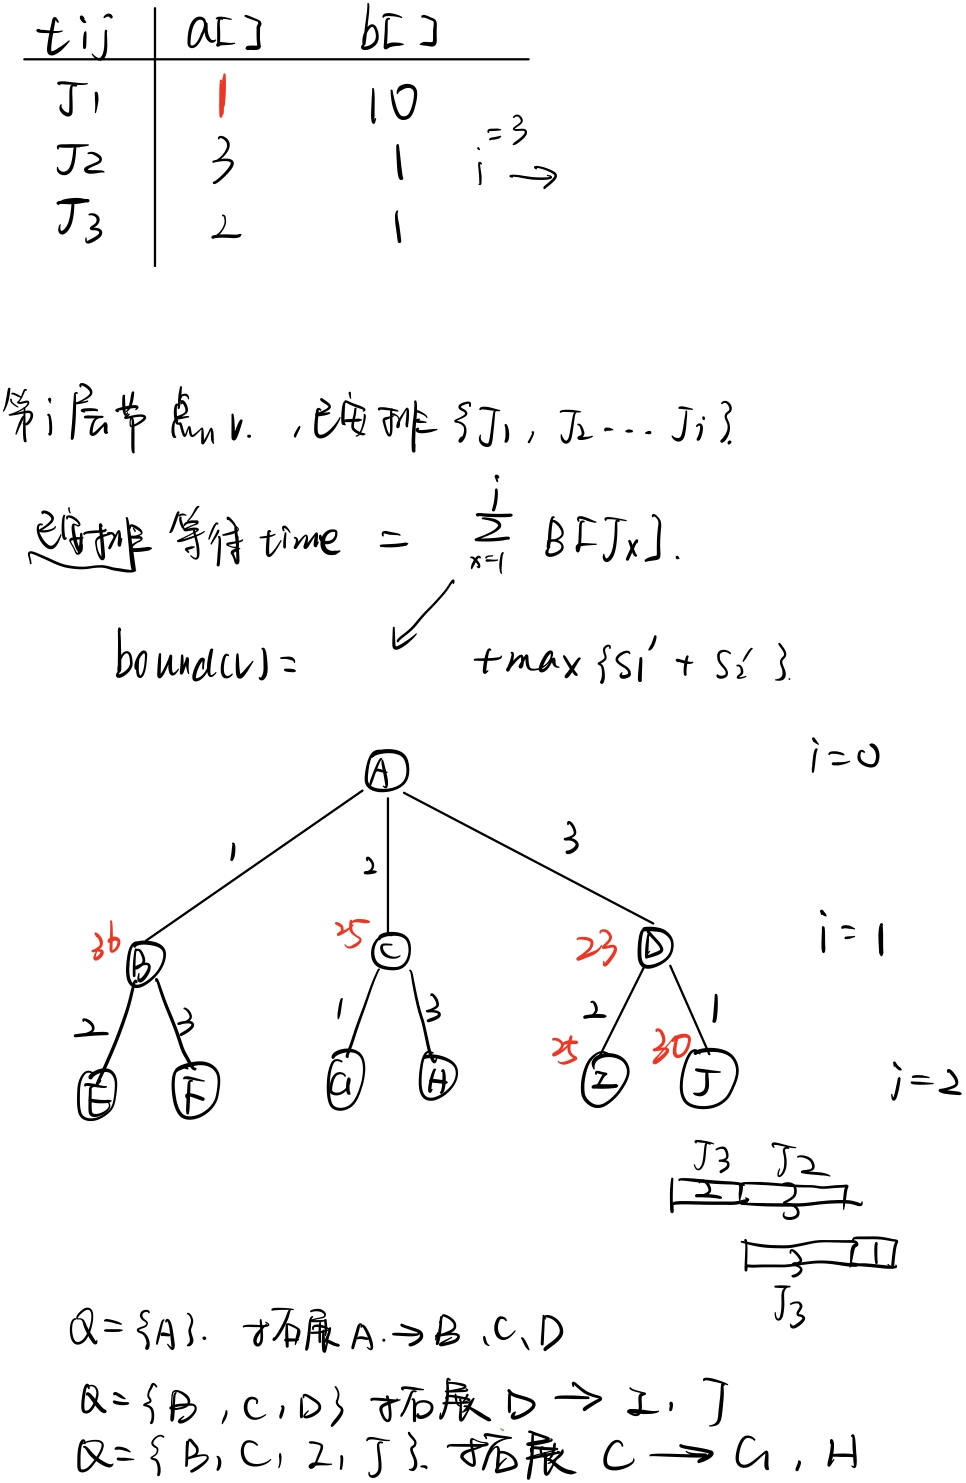 tij a[] b[]
J1 1 10
J2 3 1 i=3 →
J3 2 1
第i层节点 v. ,已安排 {J1, J2 ... Ji}.
已安排 等待 time = i Σ x=1 B[Jx].
bound(v) = + max {S1' + S2'}.
A i=0
1 2 3
36 B 25 C 23 D i=1
2 3 1 3 2 1
E F G H 25 I 30 J i=2
J3 J2
2 3
3 1
J3
Q={A}. 拓展 A. → B、C、D
Q={B, C, D} 拓展 D → I, J
Q={B, C, I, J}. 拓展 C → G, H